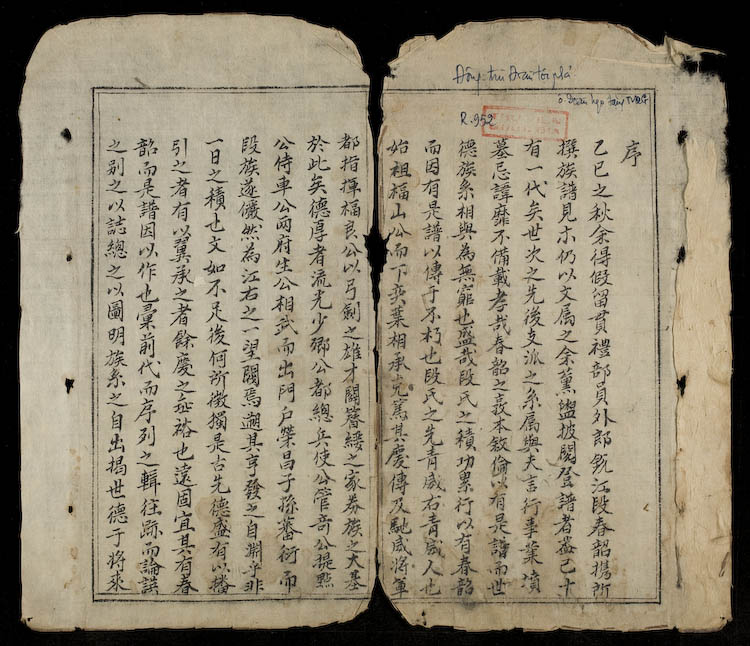 Đông-trù Đoàn tộc phả
R.952
序
乙巳之秋余得假留貫禮部員外郎甄江段春韶携所
撰族譜見示仍以文属之余薰盥披閱登譜者盖已十
有一代矣世次之先後支派之系属與夫言行事業墳
墓忌諱靡不備載孝哉春韶之本敘倫以有是譜而世
德族系相與為無窮也盛哉段氏之積功累行以有春韶
而因有是譜以傳于不朽也段氏之先青威右青威人也
始祖福山公而下奕葉相承克篤其慶傳及馳威將軍
都指揮福良公以弓劍之雄才闢簪纓之家券族之大基
於此矣德厚者流光少卿公都總兵使公管奇公提點
公侍車公兩府生公相武而出門户榮昌子孫蕃衍而
段族遂儼然為江右之一望閥焉遡其亨發之自淵乎非
一日之積也文如不足後何所徵獨是古先德盛有以
引之者有以翼承之者餘慶之裕也遠固宜其有春
韶而是譜因以作也彙前代而序列之輯往跡而論譔
之别之以誌總之以圖明族系之自出揭世德于將來